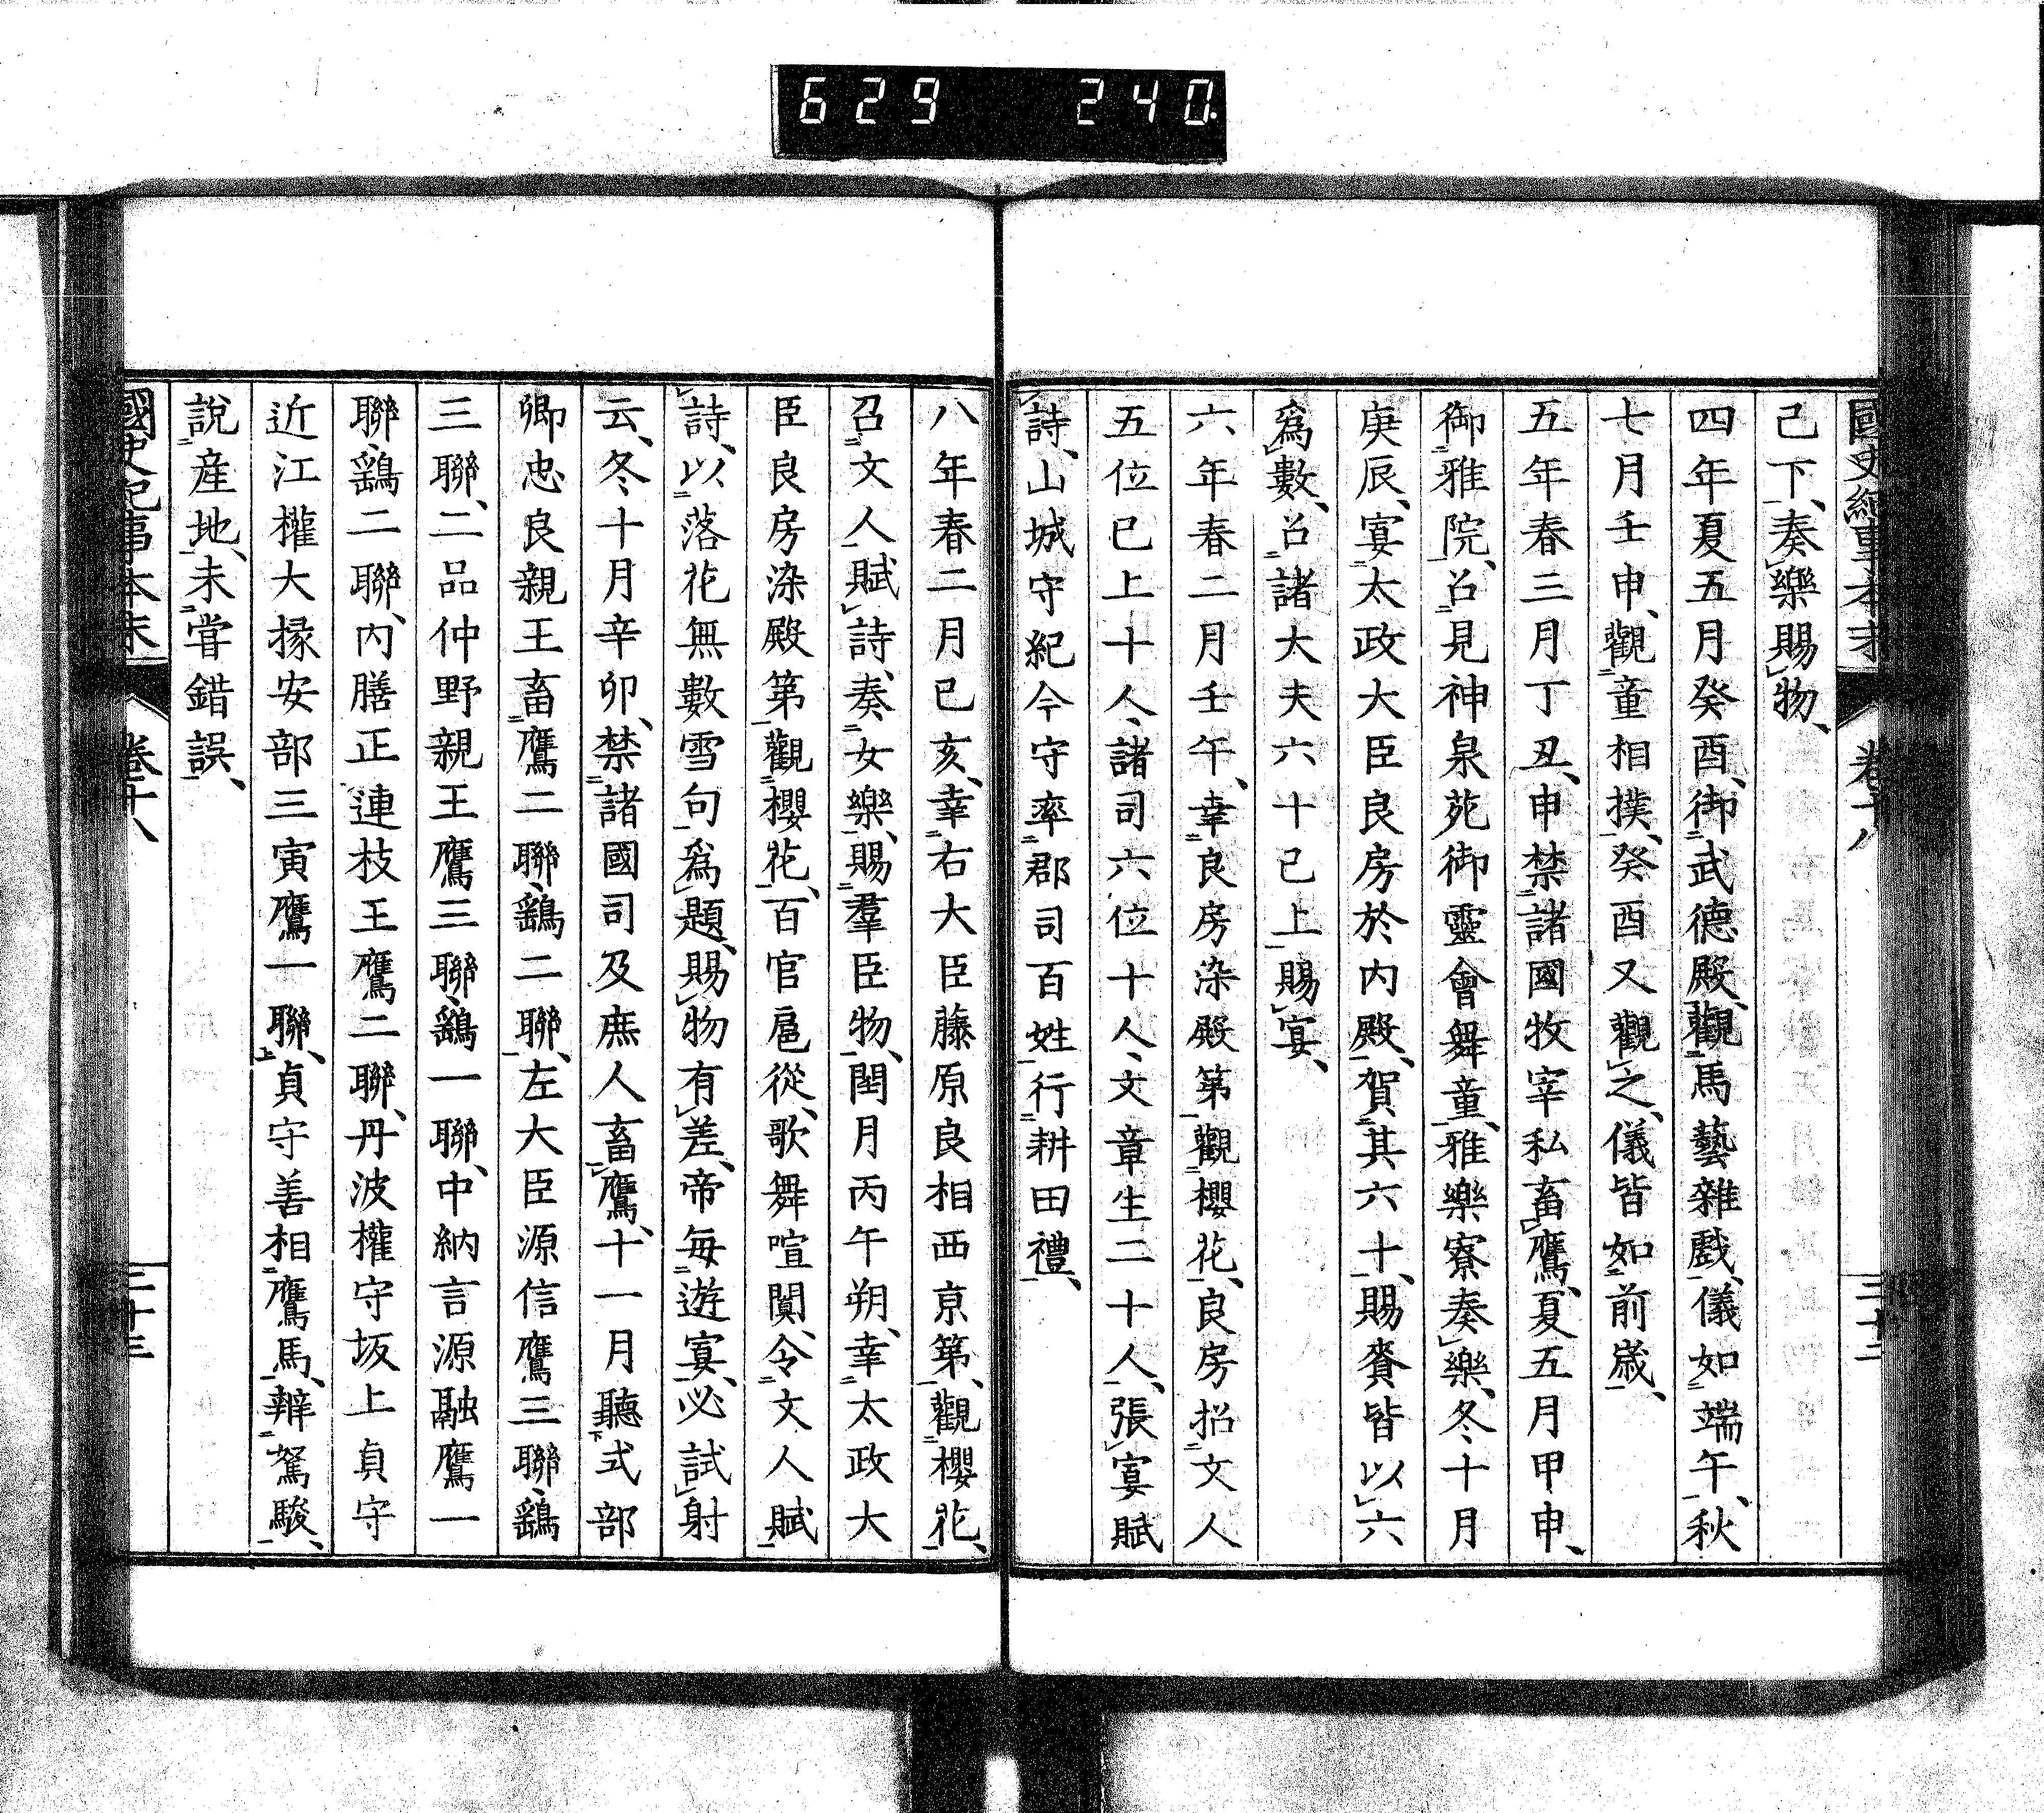 629 240.
國史紀事本末 卷十八 三十二
己下、奏樂賜物、
四年夏五月癸酉、御武德殿、觀馬藝雜戲、儀如端午、秋
七月壬申、觀童相撲、癸酉又觀之、儀皆如前歲、
五年春三月丁丑、申禁諸國牧宰私畜鷹、夏五月甲申、
御雅院、召見神泉苑御靈會舞童、雅樂寮奏樂、冬十月
庚辰、宴太政大臣良房於内殿、賀其六十、賜賚皆以六
爲數、召諸大夫六十已上賜宴、
六年春二月壬午、幸良房染殿第觀櫻花、良房招文人
五位已上十人、諸司六位十人、文章生二十人、張宴賦
詩、山城守紀今守率郡司百姓行耕田禮、
八年春二月已亥、幸右大臣藤原良相西京第、觀櫻花、
召文人賦詩、奏女樂、賜羣臣物、閏月丙午朔、幸太政大
臣良房染殿第觀櫻花、百官扈從、歌舞喧闐、令文人賦
詩、以落花無數雪句爲題、賜物有差、帝每遊宴、必試射
云、冬十月辛卯、禁諸國司及庶人畜鷹、十一月聽式部
卿忠良親王畜鷹二聯、鷂二聯、左大臣源信鷹三聯、鷂
三聯、二品仲野親王鷹三聯、鷂一聯、中納言源融鷹一
聯、鷂二聯、内膳正連枝王鷹二聯、丹波權守坂上貞守
近江權大掾安部三寅鷹一聯、貞守善相鷹馬、辨駑駿、
說産地、未嘗錯誤、
國史紀事本末 卷十八 三十三